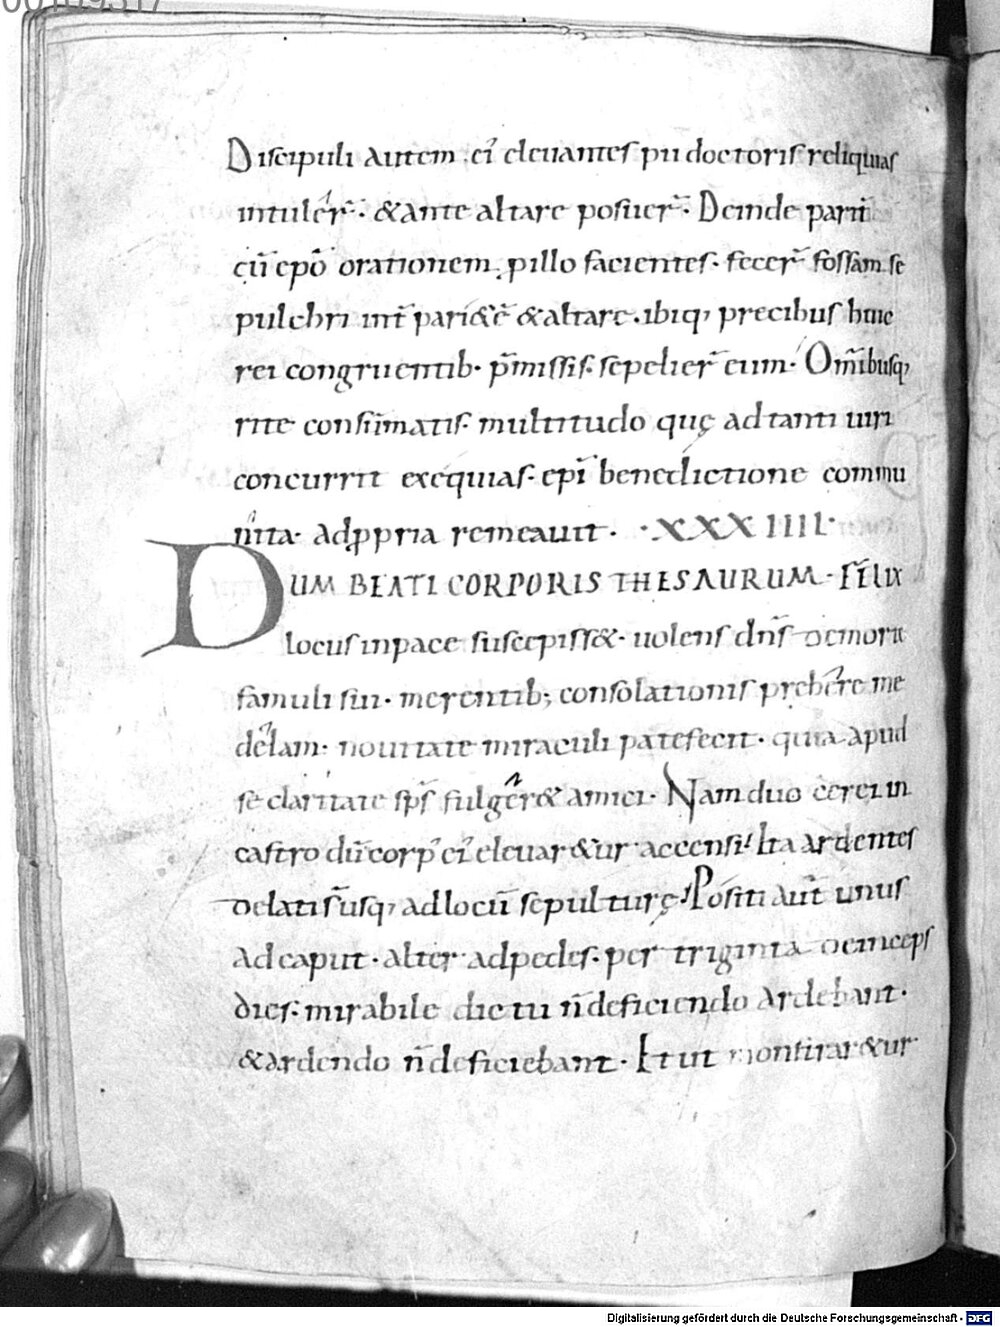 00109317
Discipuli autem ei᾽ eleuantes pii doctoris reliquias
intulér̄· &ante altare posuer̄· Deinde parit̄
cū ep̄o orationem pillo facientes· fecer̄ fossam se
pulchri int̄ pari&ē &altare· ibiq; precibus huic
rei congruentib· p̄missis· sepelier̄ eum· Om̄ibusq;
rite consūmatis· multitudo quę ad tanti uiri
concurrit exequias· ep̄i benedictione commu
nita· adpꝓria remeauit· ·XXXIIII·
DUM BEATI CORPORIS THESAURUM· felix
locus inpace suscepiss&· uolens dn̄s demorū
famuli sui· merentib; consolationis prębere me
delam· nouitate miraculi patefecit· quia apud
se claritate sp̄s fulger& amici· Nam duo cerei in
castro dū corp᾽ ei᾽ eleuar&ur accensi! Ita ardentes
delati s̄ usq; adlocū sepulturę! Positi aut̄ unus
ad caput· alter adpedes· per triginta deinceps
dies· mirabile dictu n̄ deficiendo ardebant·
&ardendo n̄ deficiebant· Et ut monstrar&ur
Digitalisierung gefördert durch die Deutsche Forschungsgemeinschaft - DFG